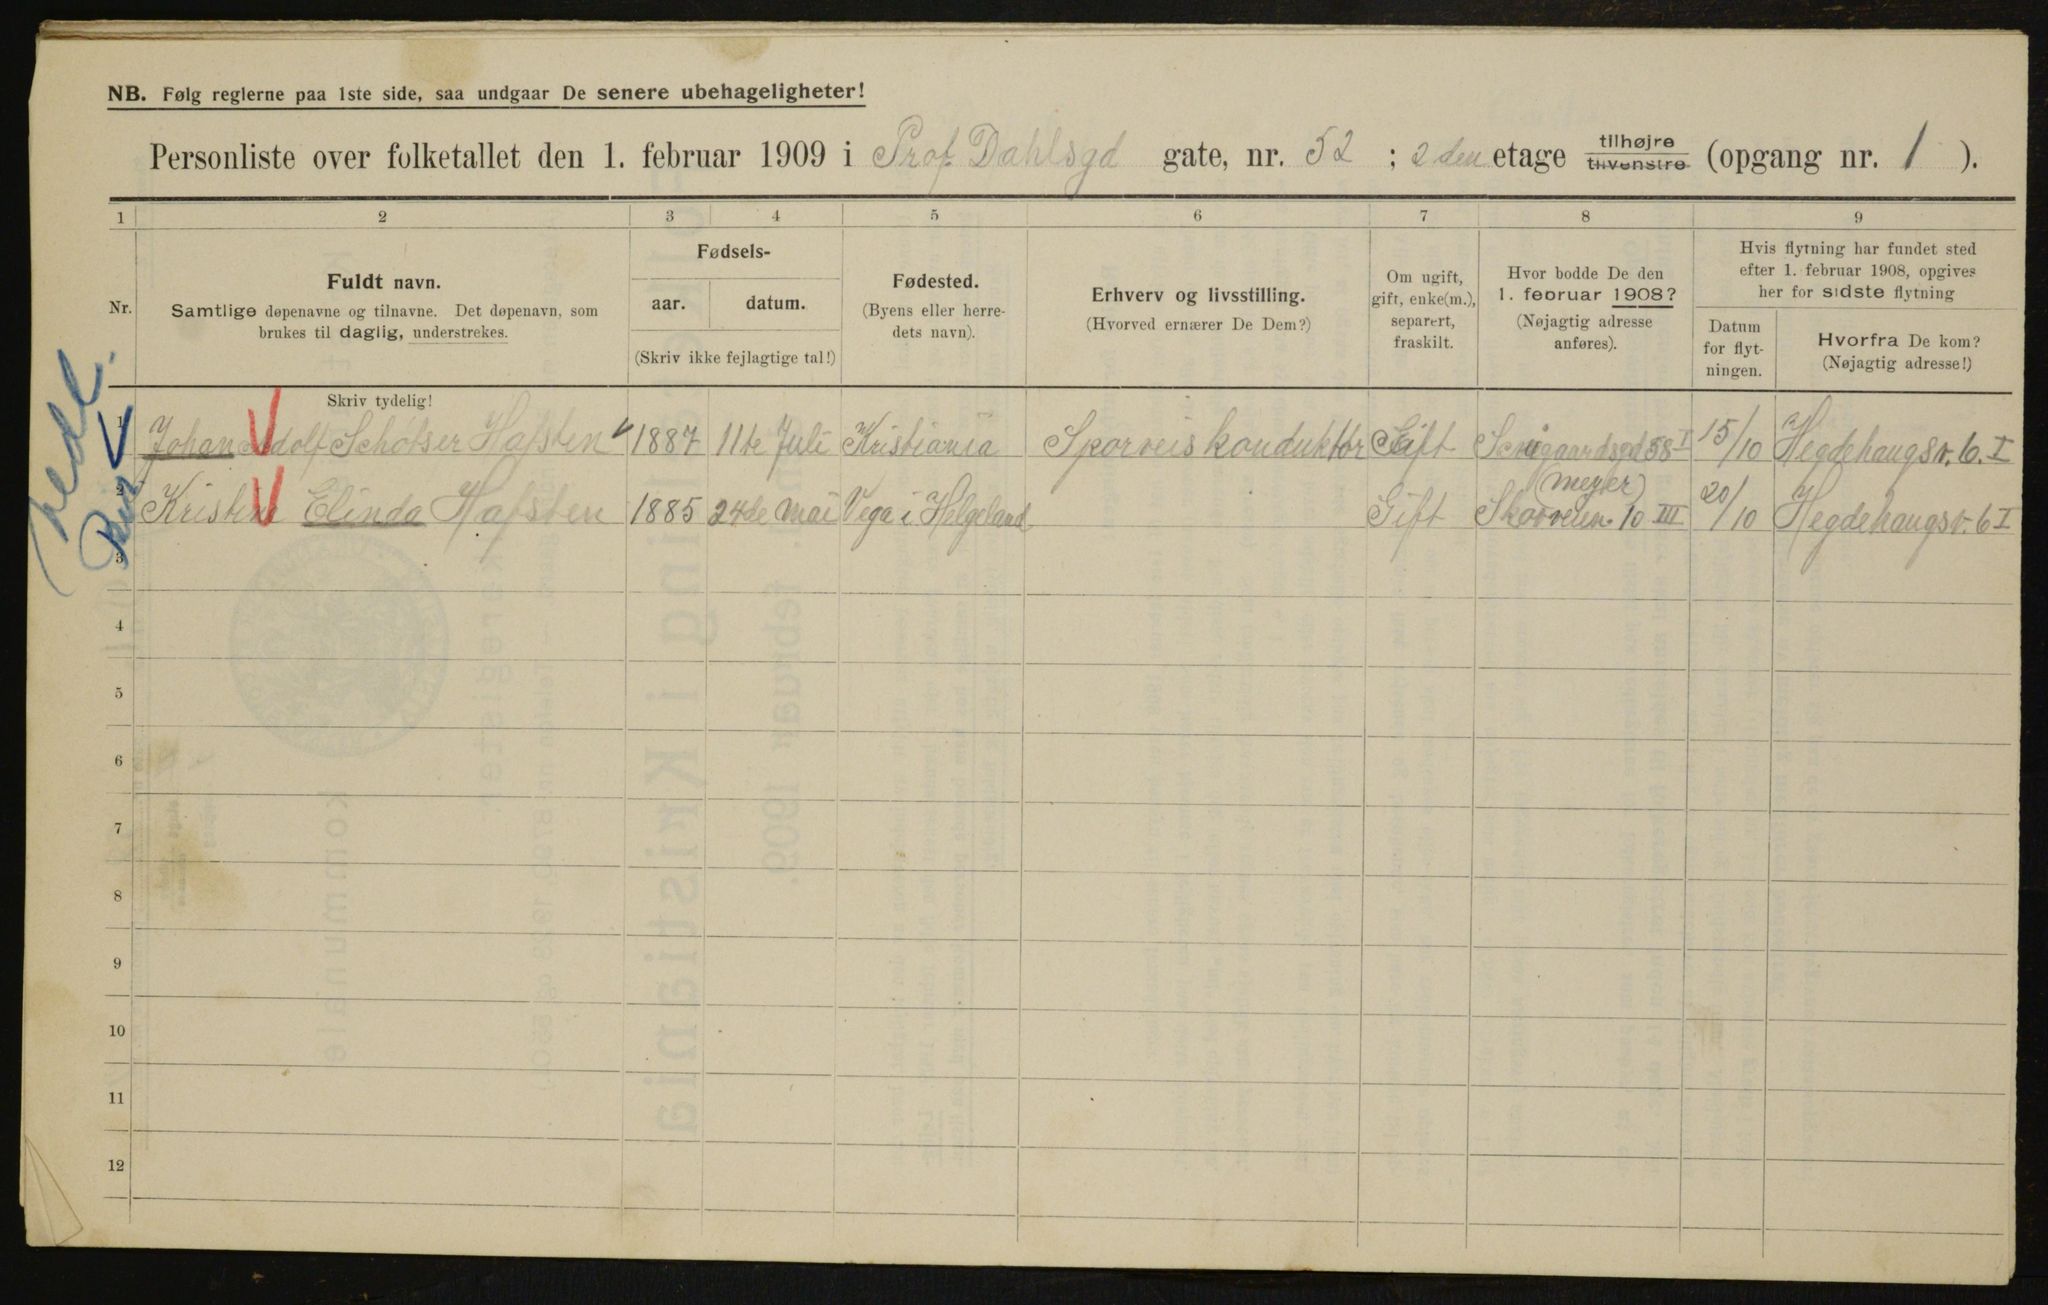 NB. Følg reglerne paa 1ste side, saa undgaar De senere ubehageligheter!
Personliste over folketallet den 1. februar 1909 i Prof. Dahlsgd gate, nr. 52 ; 2 den etage tilhøjre tilvenstre (opgang nr. 1 ).
1 2 3 4 5 6 7 8 9
Nr.
Fuldt navn.
Samtlige døpenavne og tilnavne. Det døpenavn, som
brukes til daglig, understrekes.
Fødsels-
aar. datum.
(Skriv ikke fejlagtige tal!)
Fødested.
(Byens eller herre-
dets navn).
Erhverv og livsstilling.
(Hvorved ernærer De Dem?)
Om ugift,
gift, enke(m.),
separert,
fraskilt.
Hvor bodde De den
1. februar 1908?
(Nøjagtig adresse
anføres).
Hvis flytning har fundet sted
efter 1. februar 1908, opgives
her for sidste flytning
Datum
for flyt-
ningen.
Hvorfra De kom?
(Nøjagtig adresse!)
Skriv tydelig!
1 Johan Adolf Schøtser Hafsten 1887 11te Juli Kristiania Sporveiskonduktør Gift Schwgaardsgd 58 I 15/10 Hegdehaugsv. 6. I
(meyer)
2 Kristine Elinda Hafsten 1885 24de mai Vega i Helgeland Gift Skovveien 10 III 20/10 Hegdehaugsv. 6 I
3
4
5
6
7
8
9
10
11
12